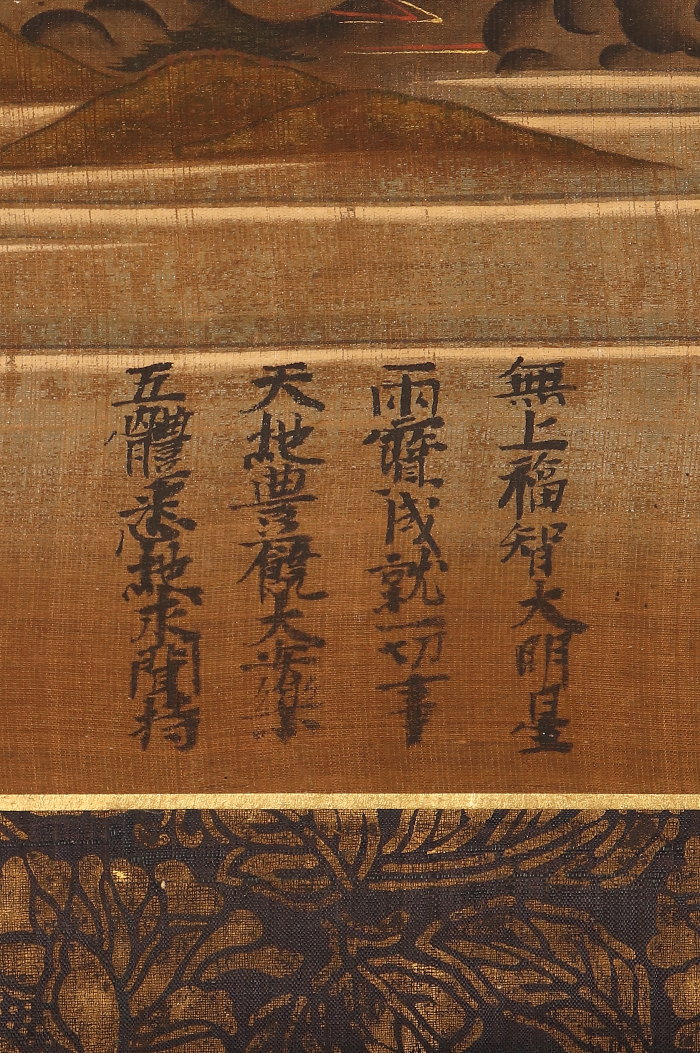 無上福智大明星
雨寳成就一切事
天地豊饒大安樂
五體悉地求聞持